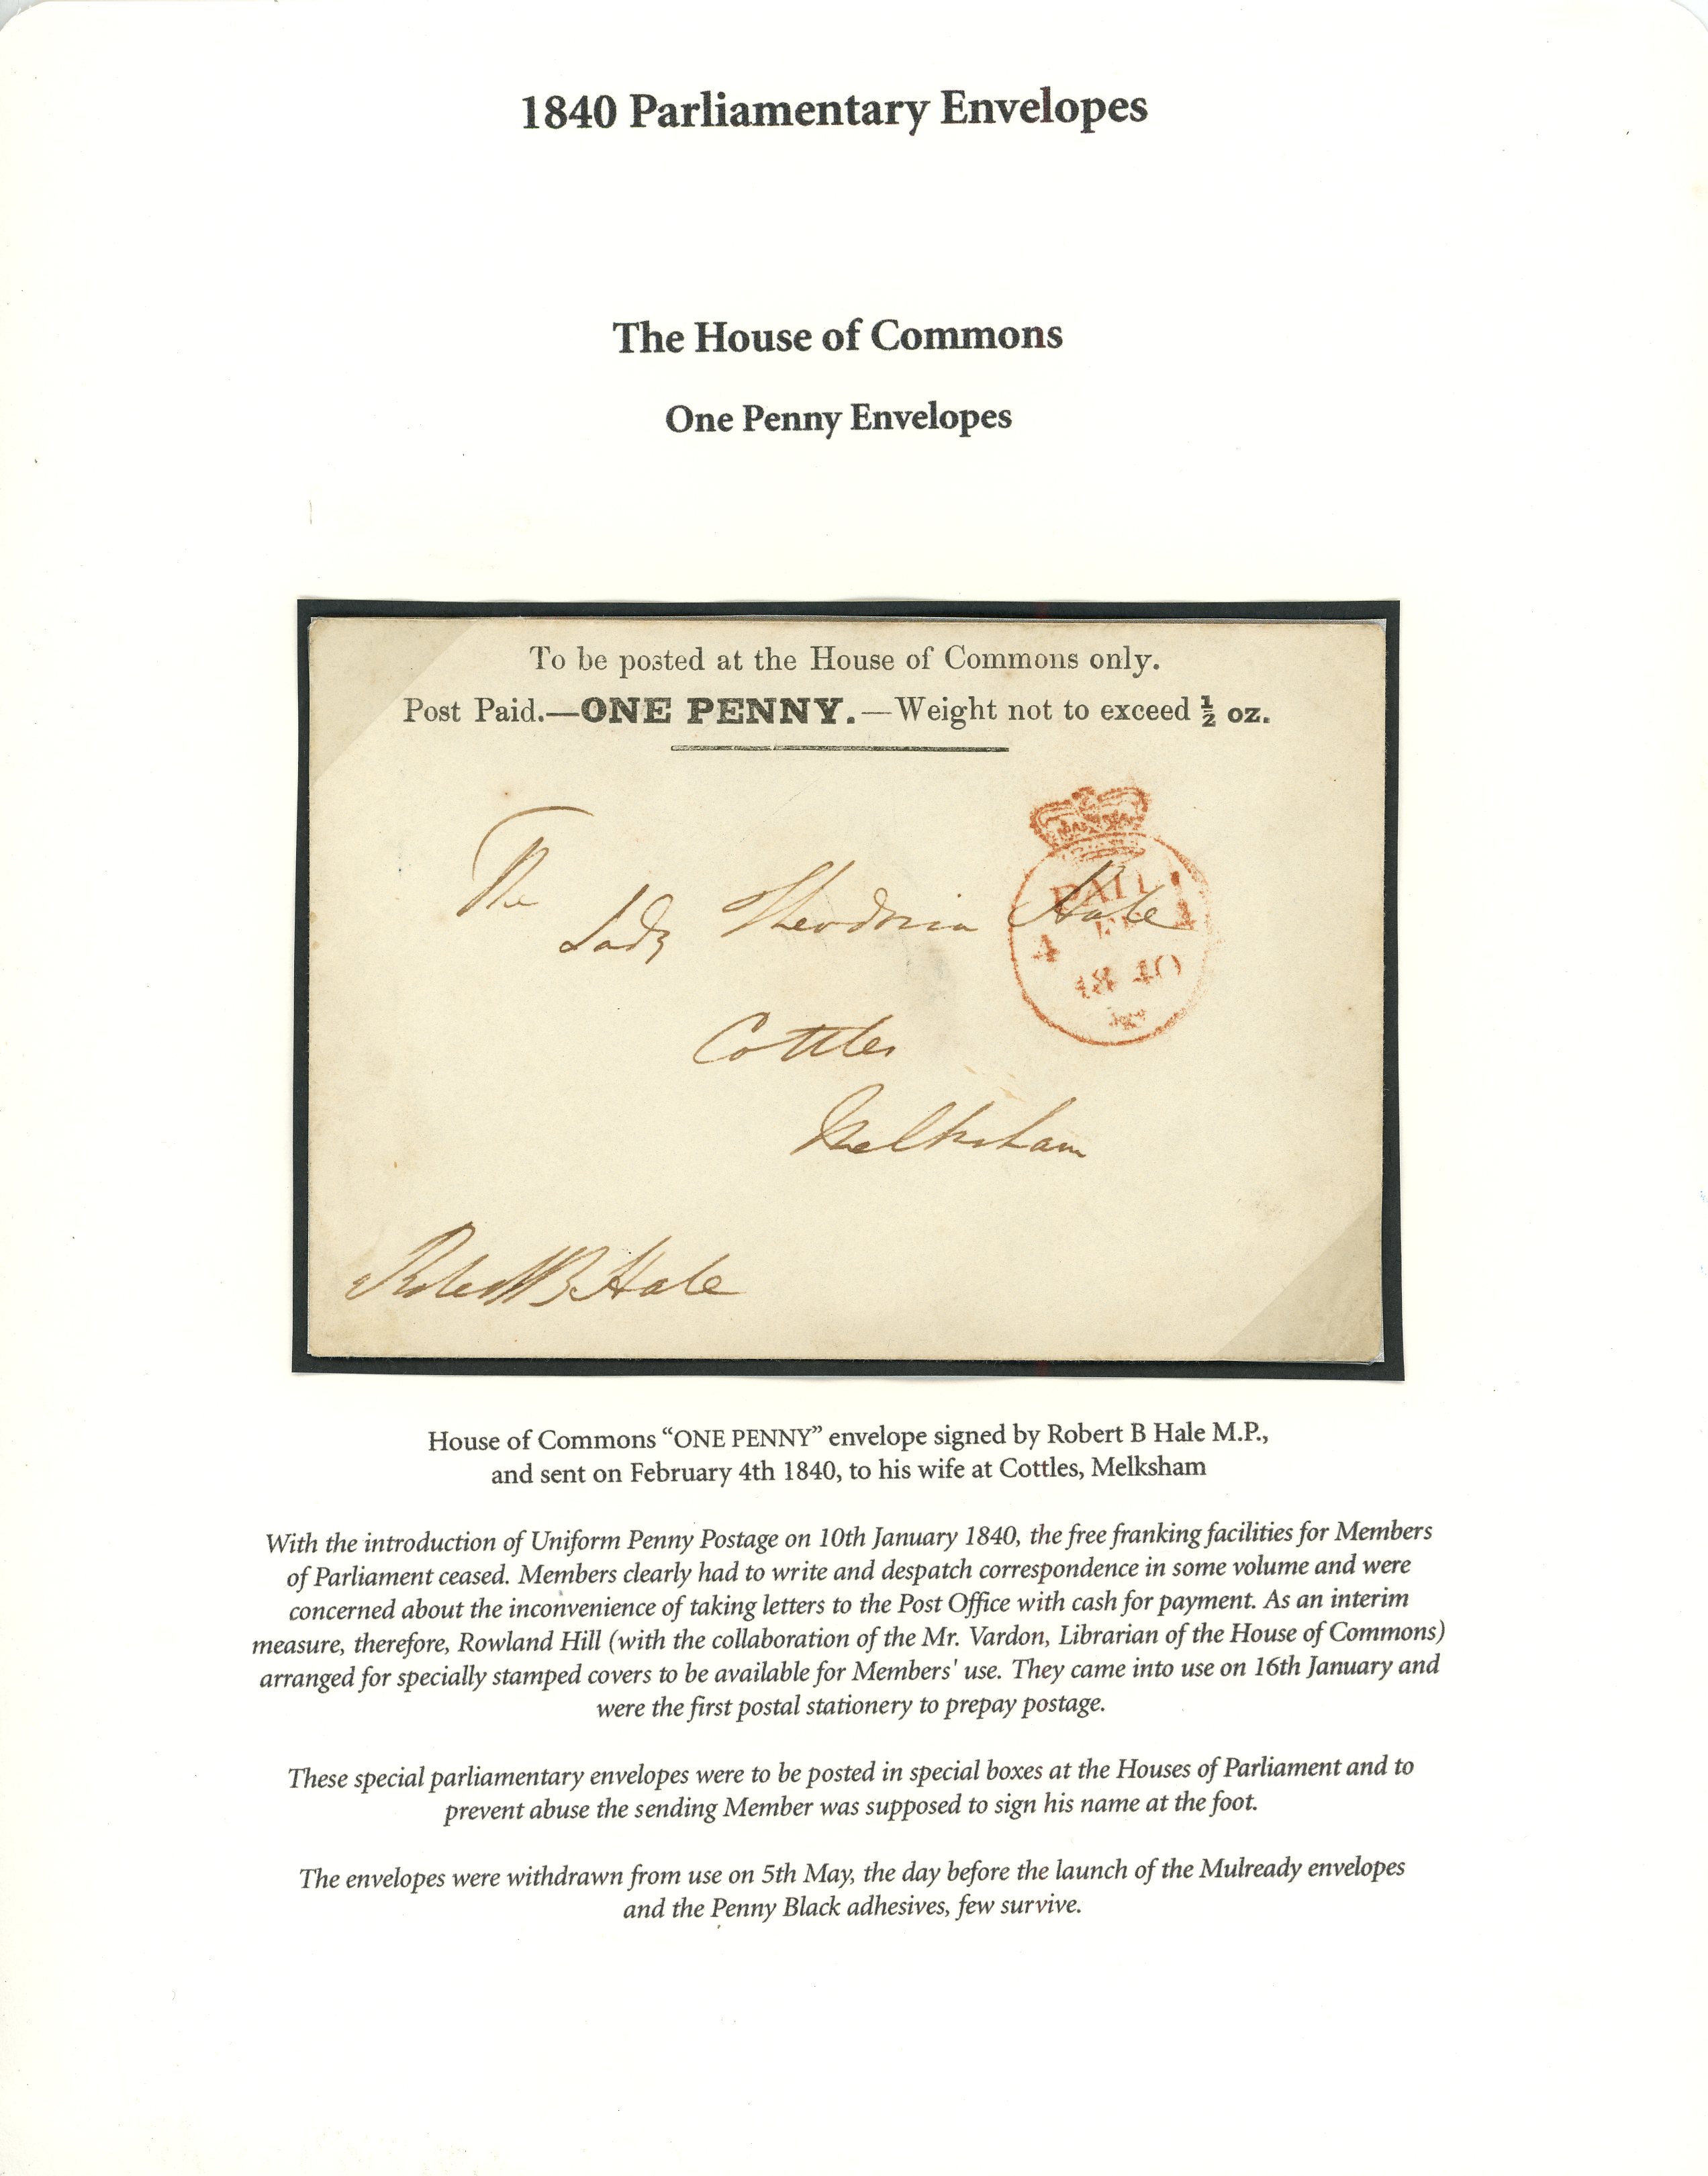 1840 Parliamentary Envelopes
The House of Commons
One Penny Envelopes
To be posted at the House of Commons only.
Post Paid.—ONE PENNY.—Weight not to exceed ½ oz.
The
Lady Theodosia Hale
PAID
4 FE 4
1840
Cottles
Melksham
Robert B Hale
House of Commons “ONE PENNY” envelope signed by Robert B Hale M.P.,
and sent on February 4th 1840, to his wife at Cottles, Melksham
With the introduction of Uniform Penny Postage on 10th January 1840, the free franking facilities for Members
of Parliament ceased. Members clearly had to write and despatch correspondence in some volume and were
concerned about the inconvenience of taking letters to the Post Office with cash for payment. As an interim
measure, therefore, Rowland Hill (with the collaboration of the Mr. Vardon, Librarian of the House of Commons)
arranged for specially stamped covers to be available for Members' use. They came into use on 16th January and
were the first postal stationery to prepay postage.
These special parliamentary envelopes were to be posted in special boxes at the Houses of Parliament and to
prevent abuse the sending Member was supposed to sign his name at the foot.
The envelopes were withdrawn from use on 5th May, the day before the launch of the Mulready envelopes
and the Penny Black adhesives, few survive.